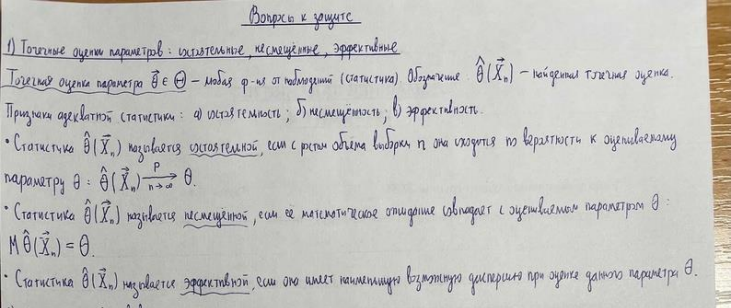 Вопросы к защите
1) Точечные оценки параметров: состоятельные, несмещённые, эффективные
Точечная оценка параметра θ⃗ ∈ Θ – любая ф-ия от наблюдений (статистика). Обозначение θ̂(X⃗ₙ) – найденная точечная оценка.
Признаки адекватной статистики: а) состоятельность; б) несмещённость; в) эффективность.
• Статистика θ̂(X⃗ₙ) называется состоятельной, если с ростом объёма выборки n она сходится по вероятности к оцениваемому
параметру θ: θ̂(X⃗ₙ) —P→ n→∞ θ.
• Статистика θ̂(X⃗ₙ) называется несмещённой, если её математическое ожидание совпадает с оцениваемым параметром θ:
M θ̂(X⃗ₙ) = θ.
• Статистика θ̂(X⃗ₙ) называется эффективной, если она имеет наименьшую возможную дисперсию при оценке данного параметра θ.